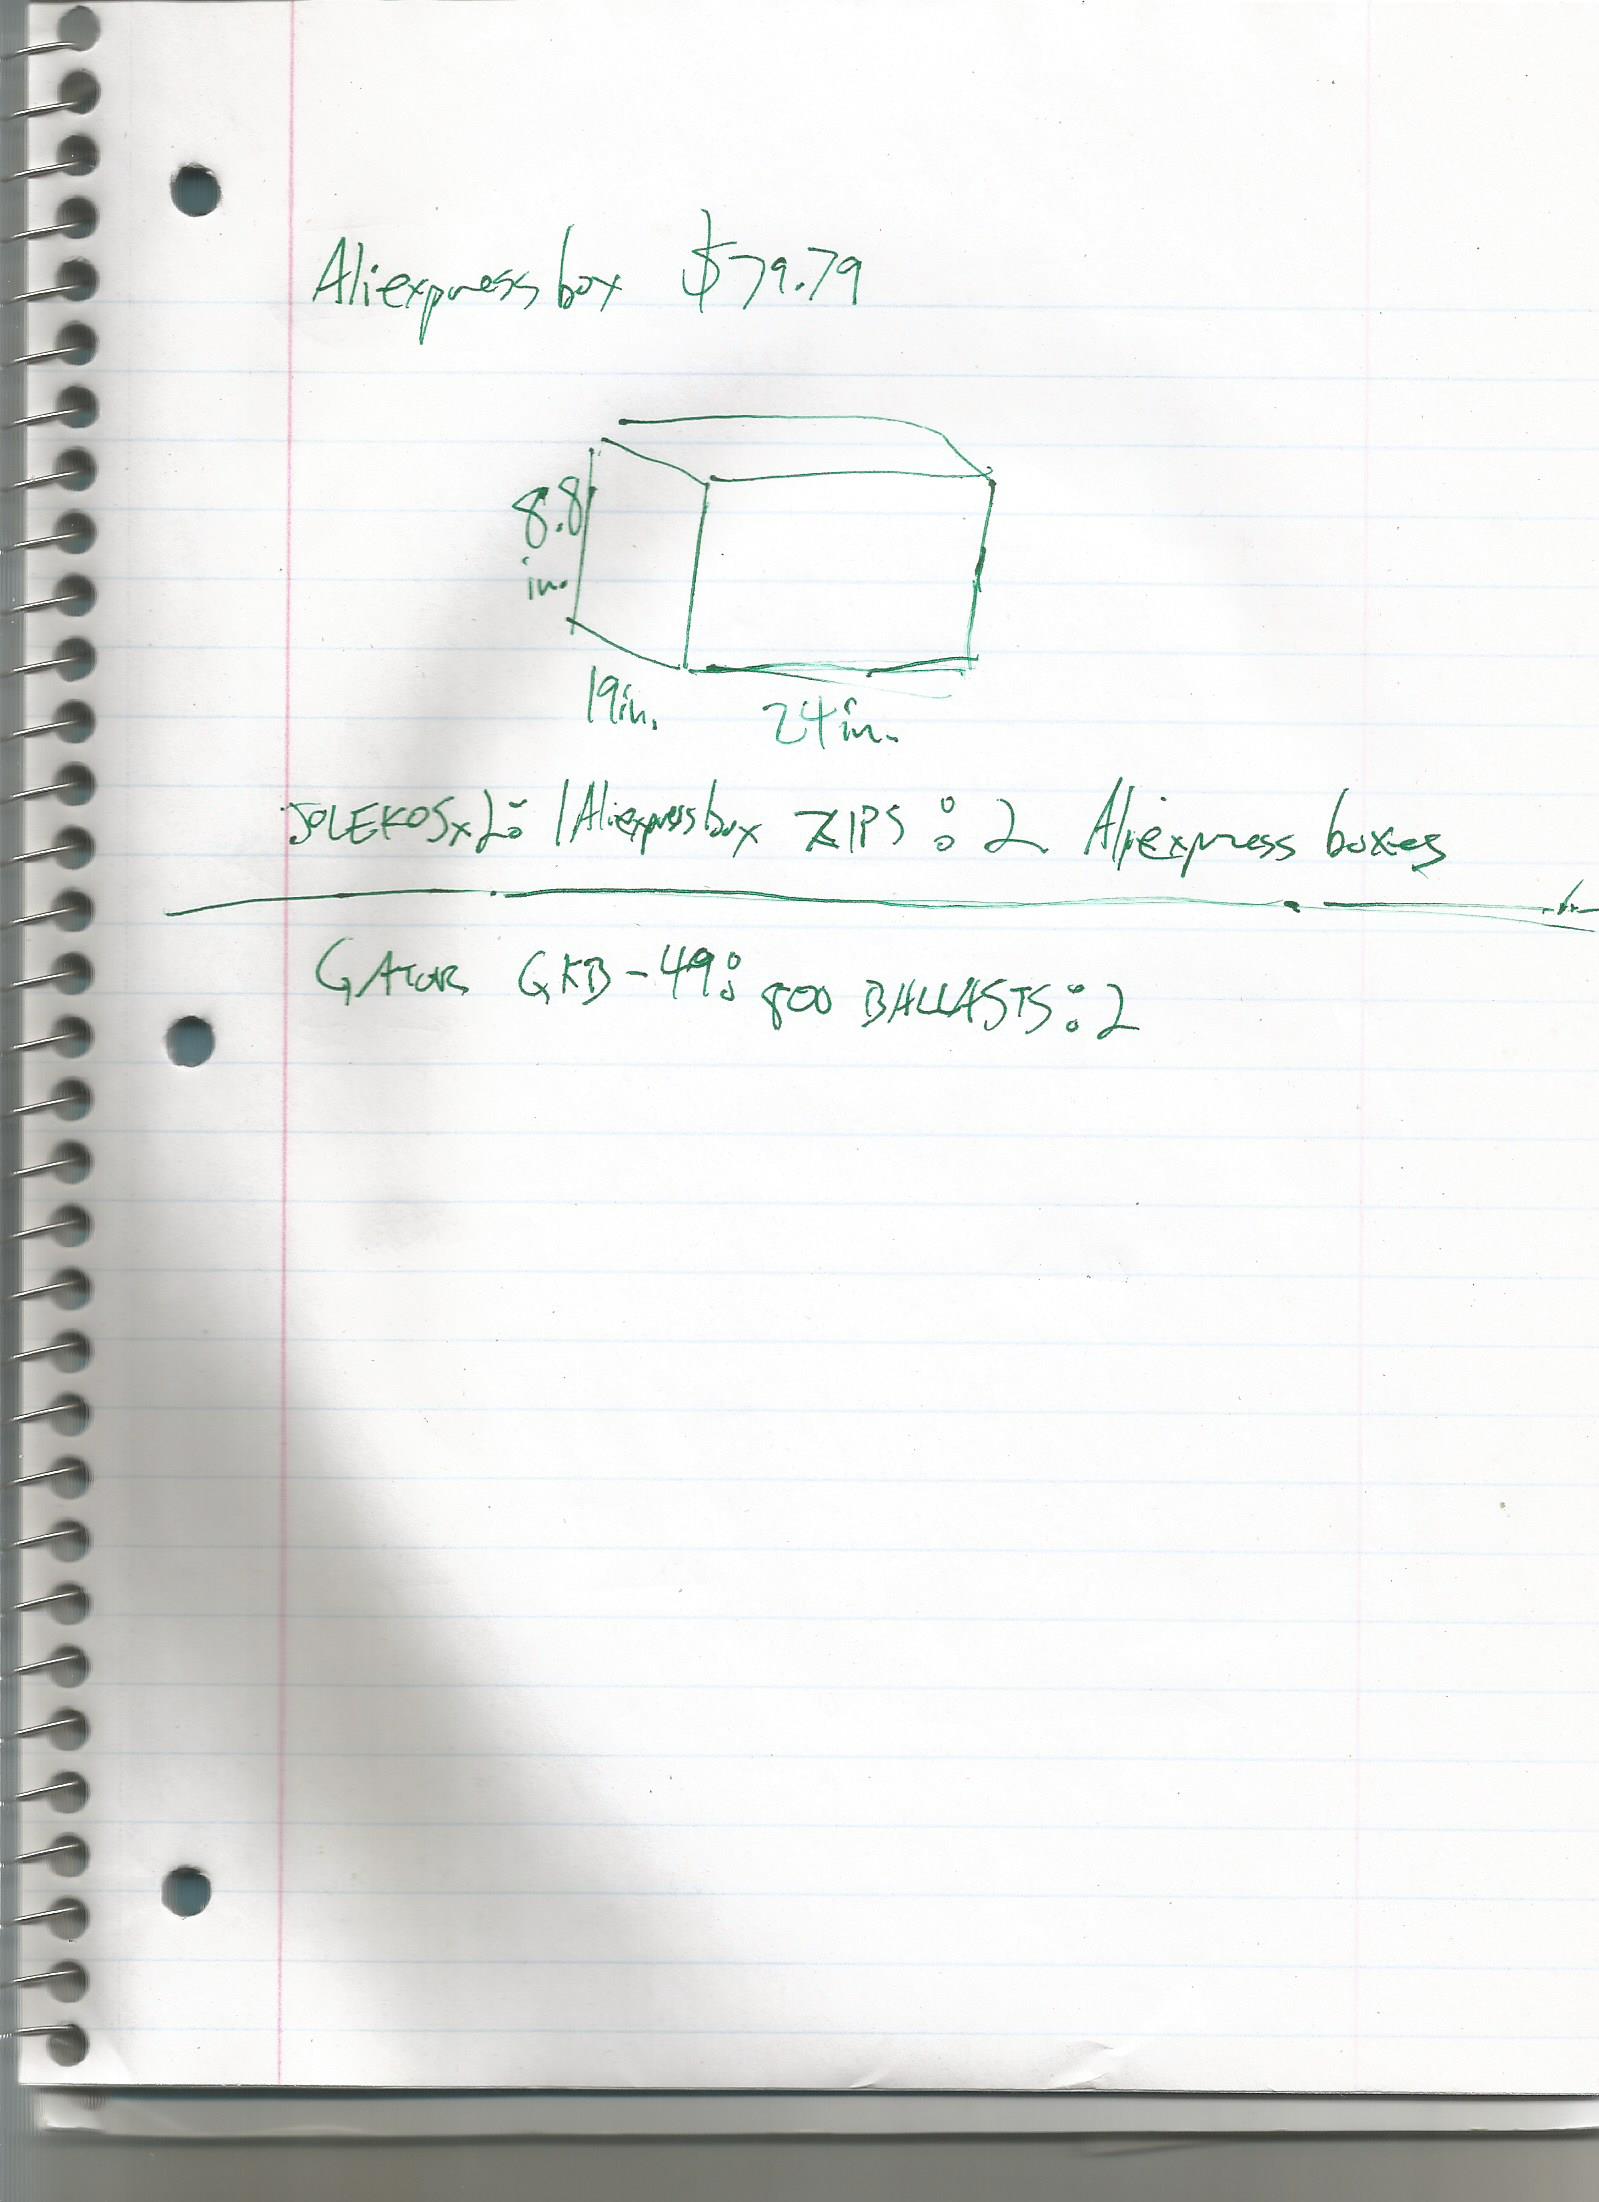 Aliexpress box $79.79
8.8
in.
19in. 24in.
JOLEKOSx2: 1 Aliexpress box ZIPS: 2 Aliexpress boxes
GATOR GKB-49: 800 BALLASTS: 2